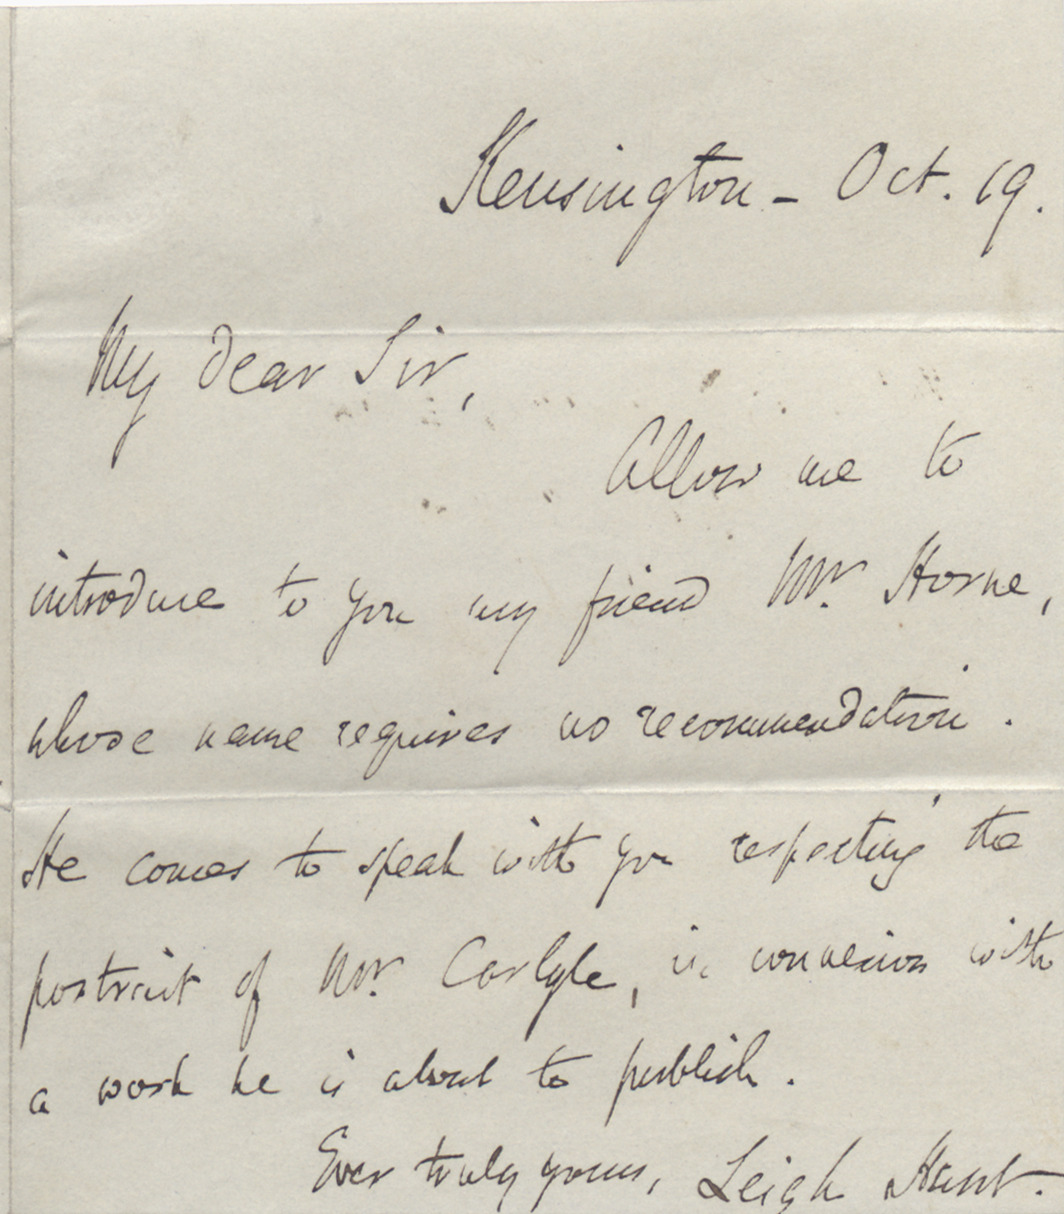 Kensington – Oct. 19.
My dear Sir,
Allow me to
introduce to you my friend Mr. Horne,
whose name requires no recommendation.
He comes to speak with you respecting the
portrait of Mr. Carlyle, in connexion with
a work he is about to publish.
Ever truly yours, Leigh Hunt.